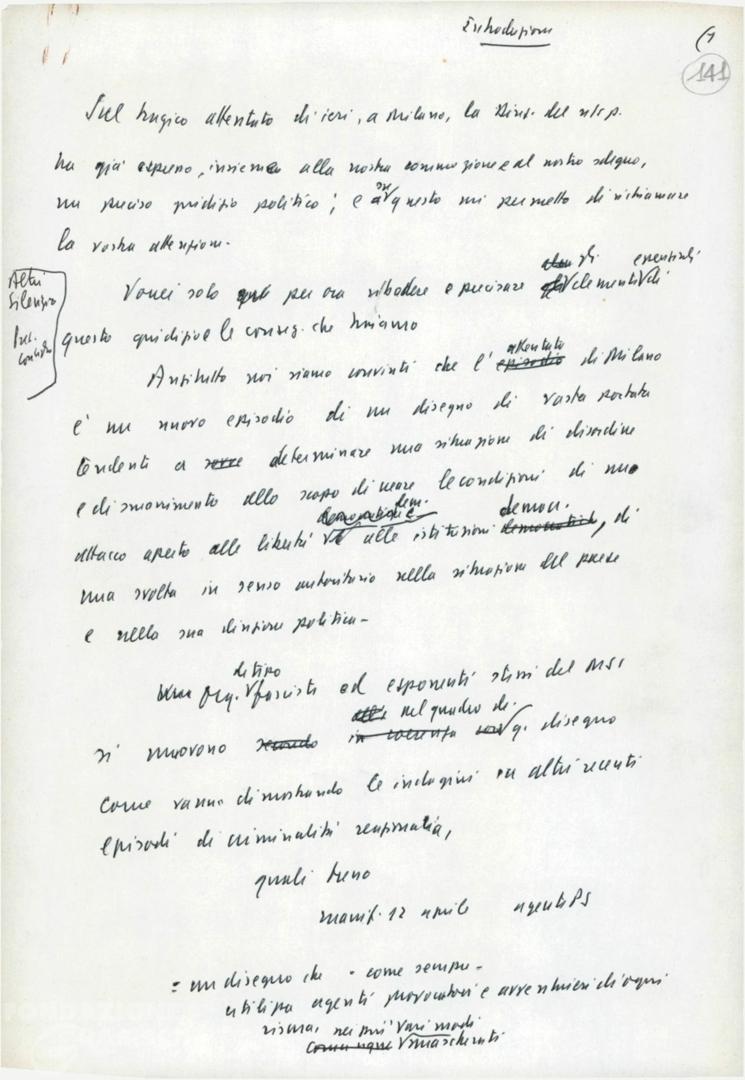 Introduzione
(1
141
Sul tragico attentato di ieri, a Milano, la Direz. del n/s p.
ha già espresso, insieme alla nostra commozione e al nostro sdegno,
un preciso giudizio politico; e su questo mi permetto di richiamare
la vostra attenzione.
Altri
Silenzio
Vorrei solo per ora ribadire e precisare gli elementi essenziali di
questo giudizio e le conseg. che traiamo
Anzitutto noi siamo convinti che l'episodio attentato di Milano
è un nuovo episodio di un disegno di vasta portata
tendente a determinare una situazione di disordine
e di smarrimento allo scopo di creare le condizioni di un
attacco aperto alle libertà dem. e alle istituzioni democratiche democr., di
una svolta in senso autoritario nella situazione del paese
e nella sua direzione politica -
Org. di tipo fascista ed esponenti stessi del MSI
si muovono secondo in coerenza nel quadro di q. disegno
come vanno dimostrando le indagini su altri recenti
episodi di criminalità reazionaria,
quali treno
manif. 12 aprile agente PS
= un disegno che - come sempre -
utilizza agenti provocatori e avventurieri di ogni
risma, nei più vari modi
comunque mascherati